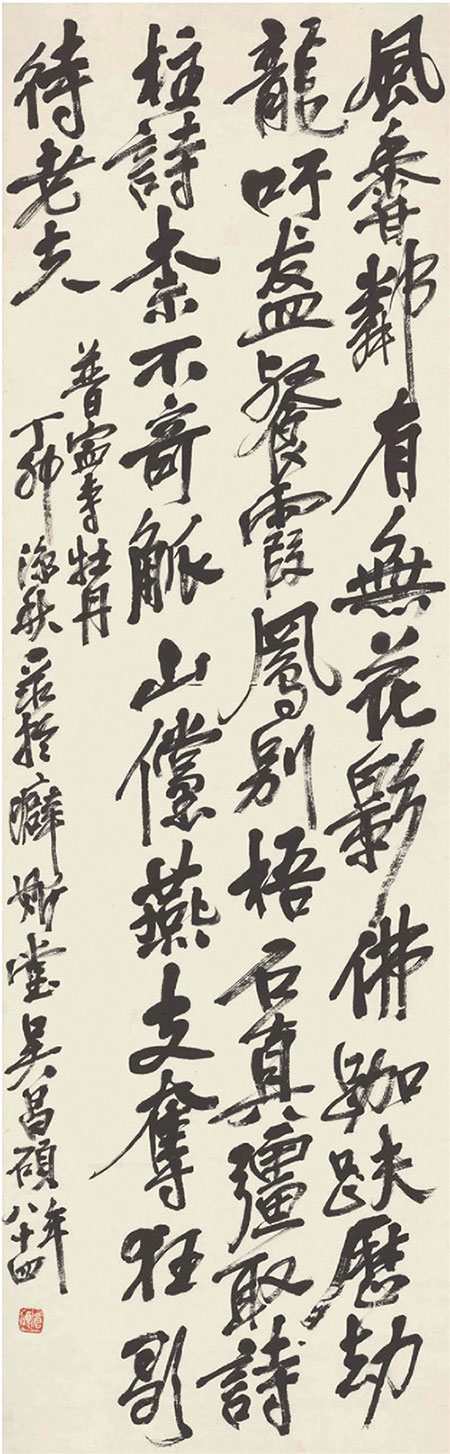 風香鄰有無花影佛跏趺歷劫
龍吁盋餐霞鳳別梧石真彊取詩
柱詩不奇觚山儻燕支奪狂歌
待老夫
普寧寺牡丹
丁卯秋於癖斯堂吳昌碩年八十四